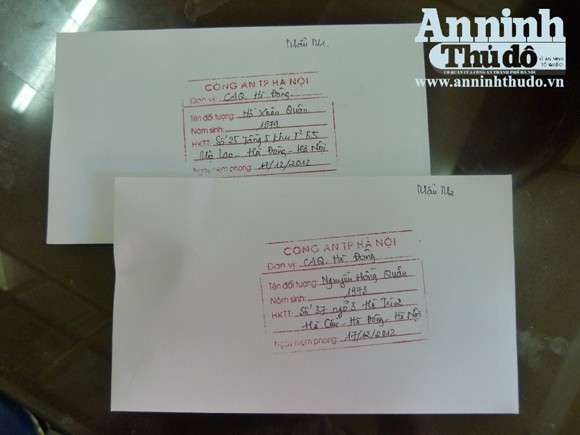 An ninh
Thủ đô
VÌ AN NINH
TỔ QUỐC
CƠ QUAN CỦA CÔNG AN THÀNH PHỐ HÀ NỘI
www.anninhthudo.vn
Mẫu M1
CÔNG AN TP HÀ NỘI
Đơn vị: CAQ Hà Đông
Tên đối tượng: Hà Xuân Quân
Năm sinh: 1979
HKTT: Số 25 tầng 5 khu
Mỗ Lao - Hà Đông - Hà Nội
Ngày niêm phong: 17/12/2012
Mẫu M2
CÔNG AN TP HÀ NỘI
Đơn vị: CAQ. Hà Đông
Tên đối tượng: Nguyễn Hồng Quân
Năm sinh: 1973
HKTT: Số 37 ngõ 3 Hà Trì 2
Hà Cầu - Hà Đông - Hà Nội
Ngày niêm phong: 17/12/2012